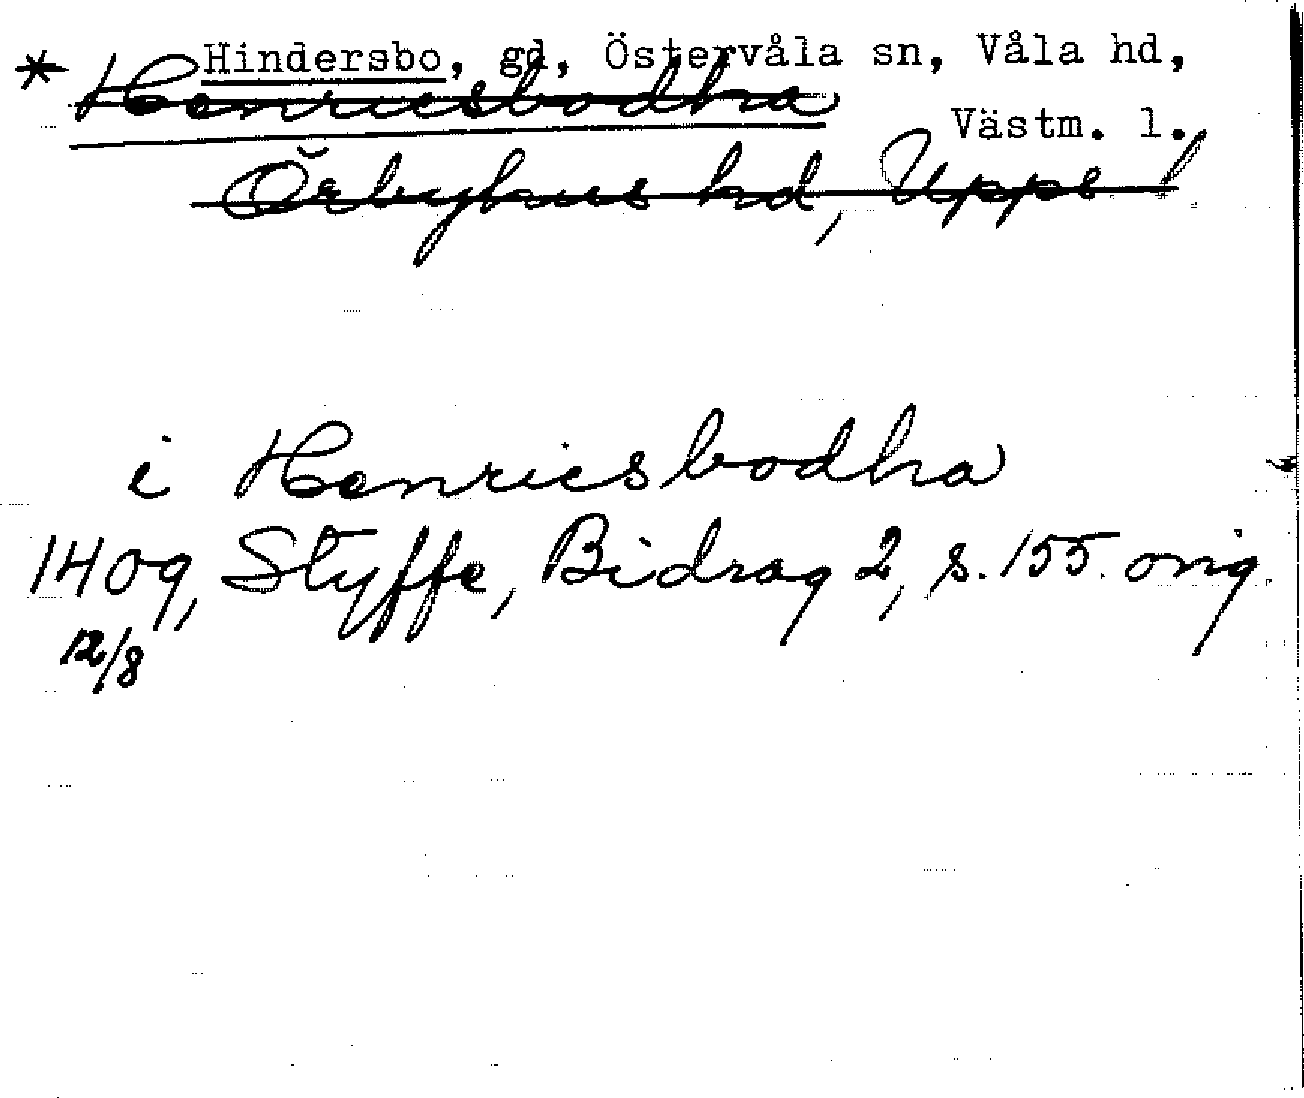 Hindersbo, gd, Östervåla sn, Våla hd,
* Henricsbodha
Västm. l.
Örbyhus hd, Uppl
i Henricsbodha
1409, Styffe, Bidrag 2, s. 155. orig.
12/8